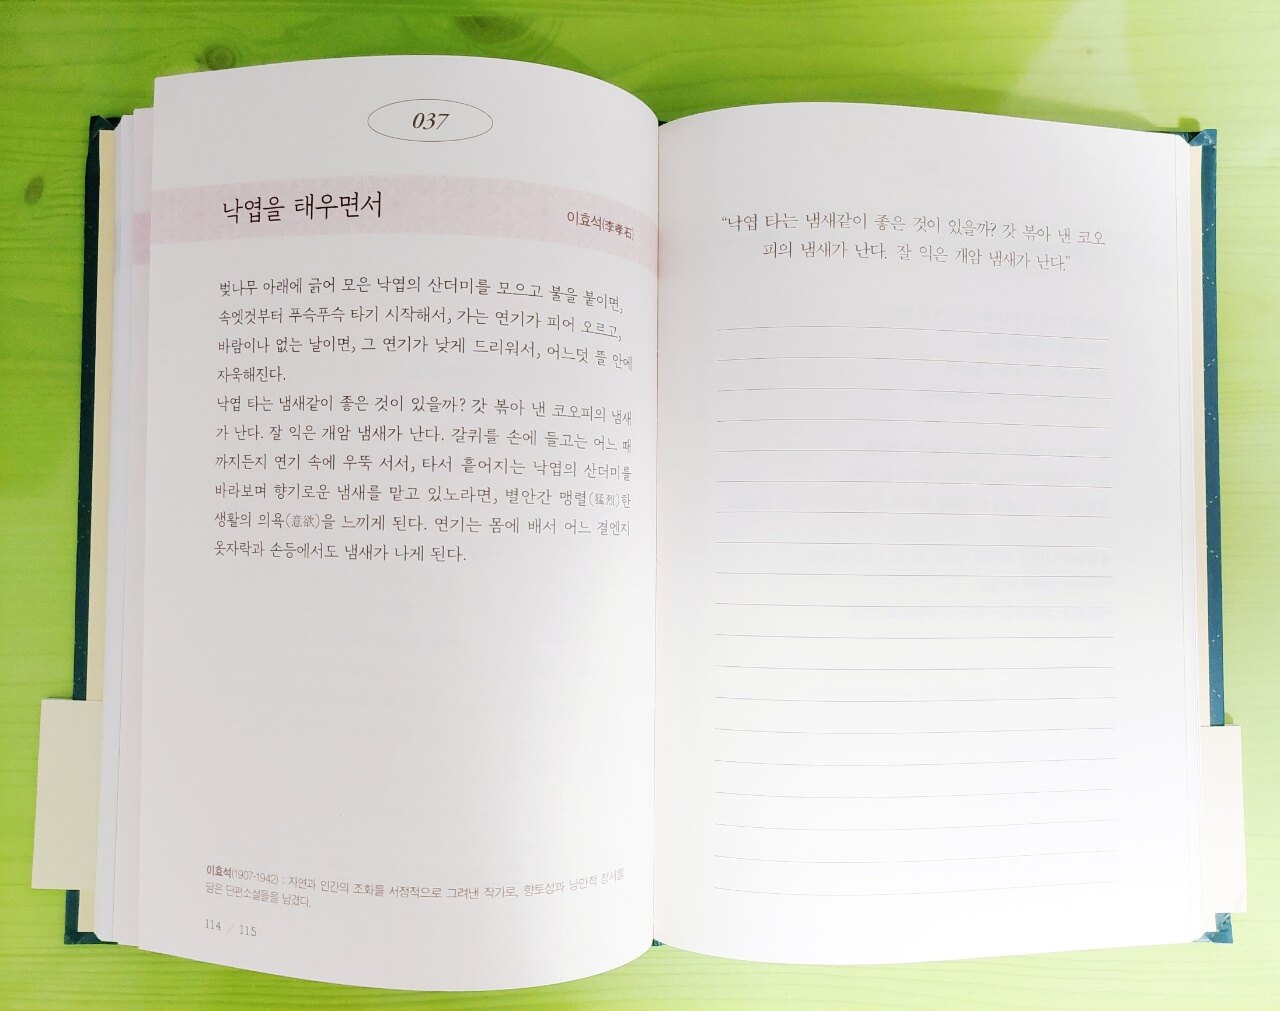 037
낙엽을 태우면서
이효석(李孝石)
벚나무 아래에 긁어 모은 낙엽의 산더미를 모으고 불을 붙이면,
속엣것부터 푸슥푸슥 타기 시작해서, 가는 연기가 피어 오르고,
바람이나 없는 날이면, 그 연기가 낮게 드리워서, 어느덧 뜰 안에
자욱해진다.
낙엽 타는 냄새같이 좋은 것이 있을까? 갓 볶아 낸 코오피의 냄새
가 난다. 잘 익은 개암 냄새가 난다. 갈퀴를 손에 들고는 어느 때
까지든지 연기 속에 우뚝 서서, 타서 흩어지는 낙엽의 산더미를
바라보며 향기로운 냄새를 맡고 있노라면, 별안간 맹렬(猛烈)한
생활의 의욕(意欲)을 느끼게 된다. 연기는 몸에 배서 어느 결엔지
옷자락과 손등에서도 냄새가 나게 된다.
이효석(1907-1942) : 자연과 인간의 조화를 서정적으로 그려낸 작가로, 향토성과 낭만적 정서를
담은 단편소설들을 남겼다.
114 / 115
“낙엽 타는 냄새같이 좋은 것이 있을까? 갓 볶아 낸 코오
피의 냄새가 난다. 잘 익은 개암 냄새가 난다.”